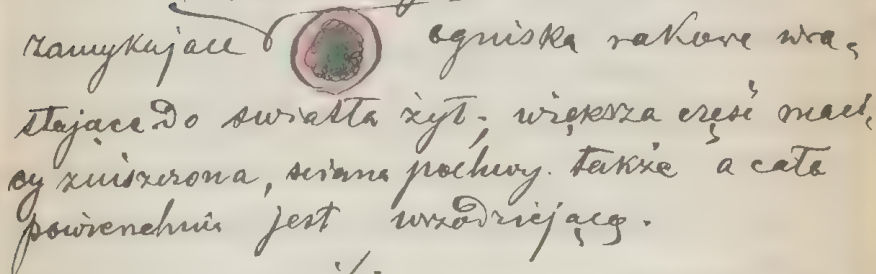 zamykające ogniska rakowe wra-
stające do swiatła żył; większa część maci-
cy zniszczona, sciana pochwy. także a cała
powierzchnia jest wrzodziejącą.